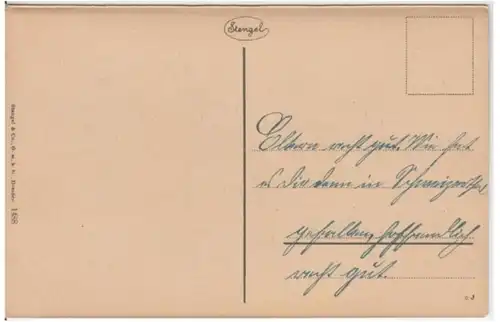 Stengel
Stengel & Co., G. m. b. H., Dresden 1488
Eltern recht gut. Wie hat
es Dir denn in
gefallen, hoffendlich
recht gut.